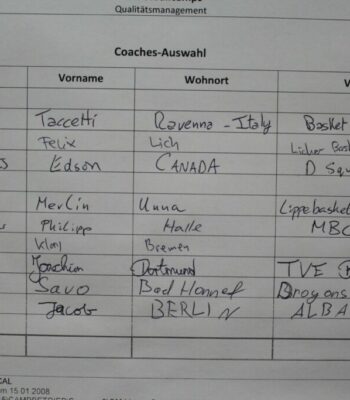 Qualitätsmanagement
Coaches-Auswahl
Vorname Wohnort V
Taccetti Ravenna - Italy Basket
Felix Lich Licher Bas
Edson CANADA D Squ
Merlin Unna Lippebasket
Philipp Halle MBC
Bremen
Joachim Dortmund TVE
Savo Bad Honnef
Jacob BERLIN ALBA
15 01 2008